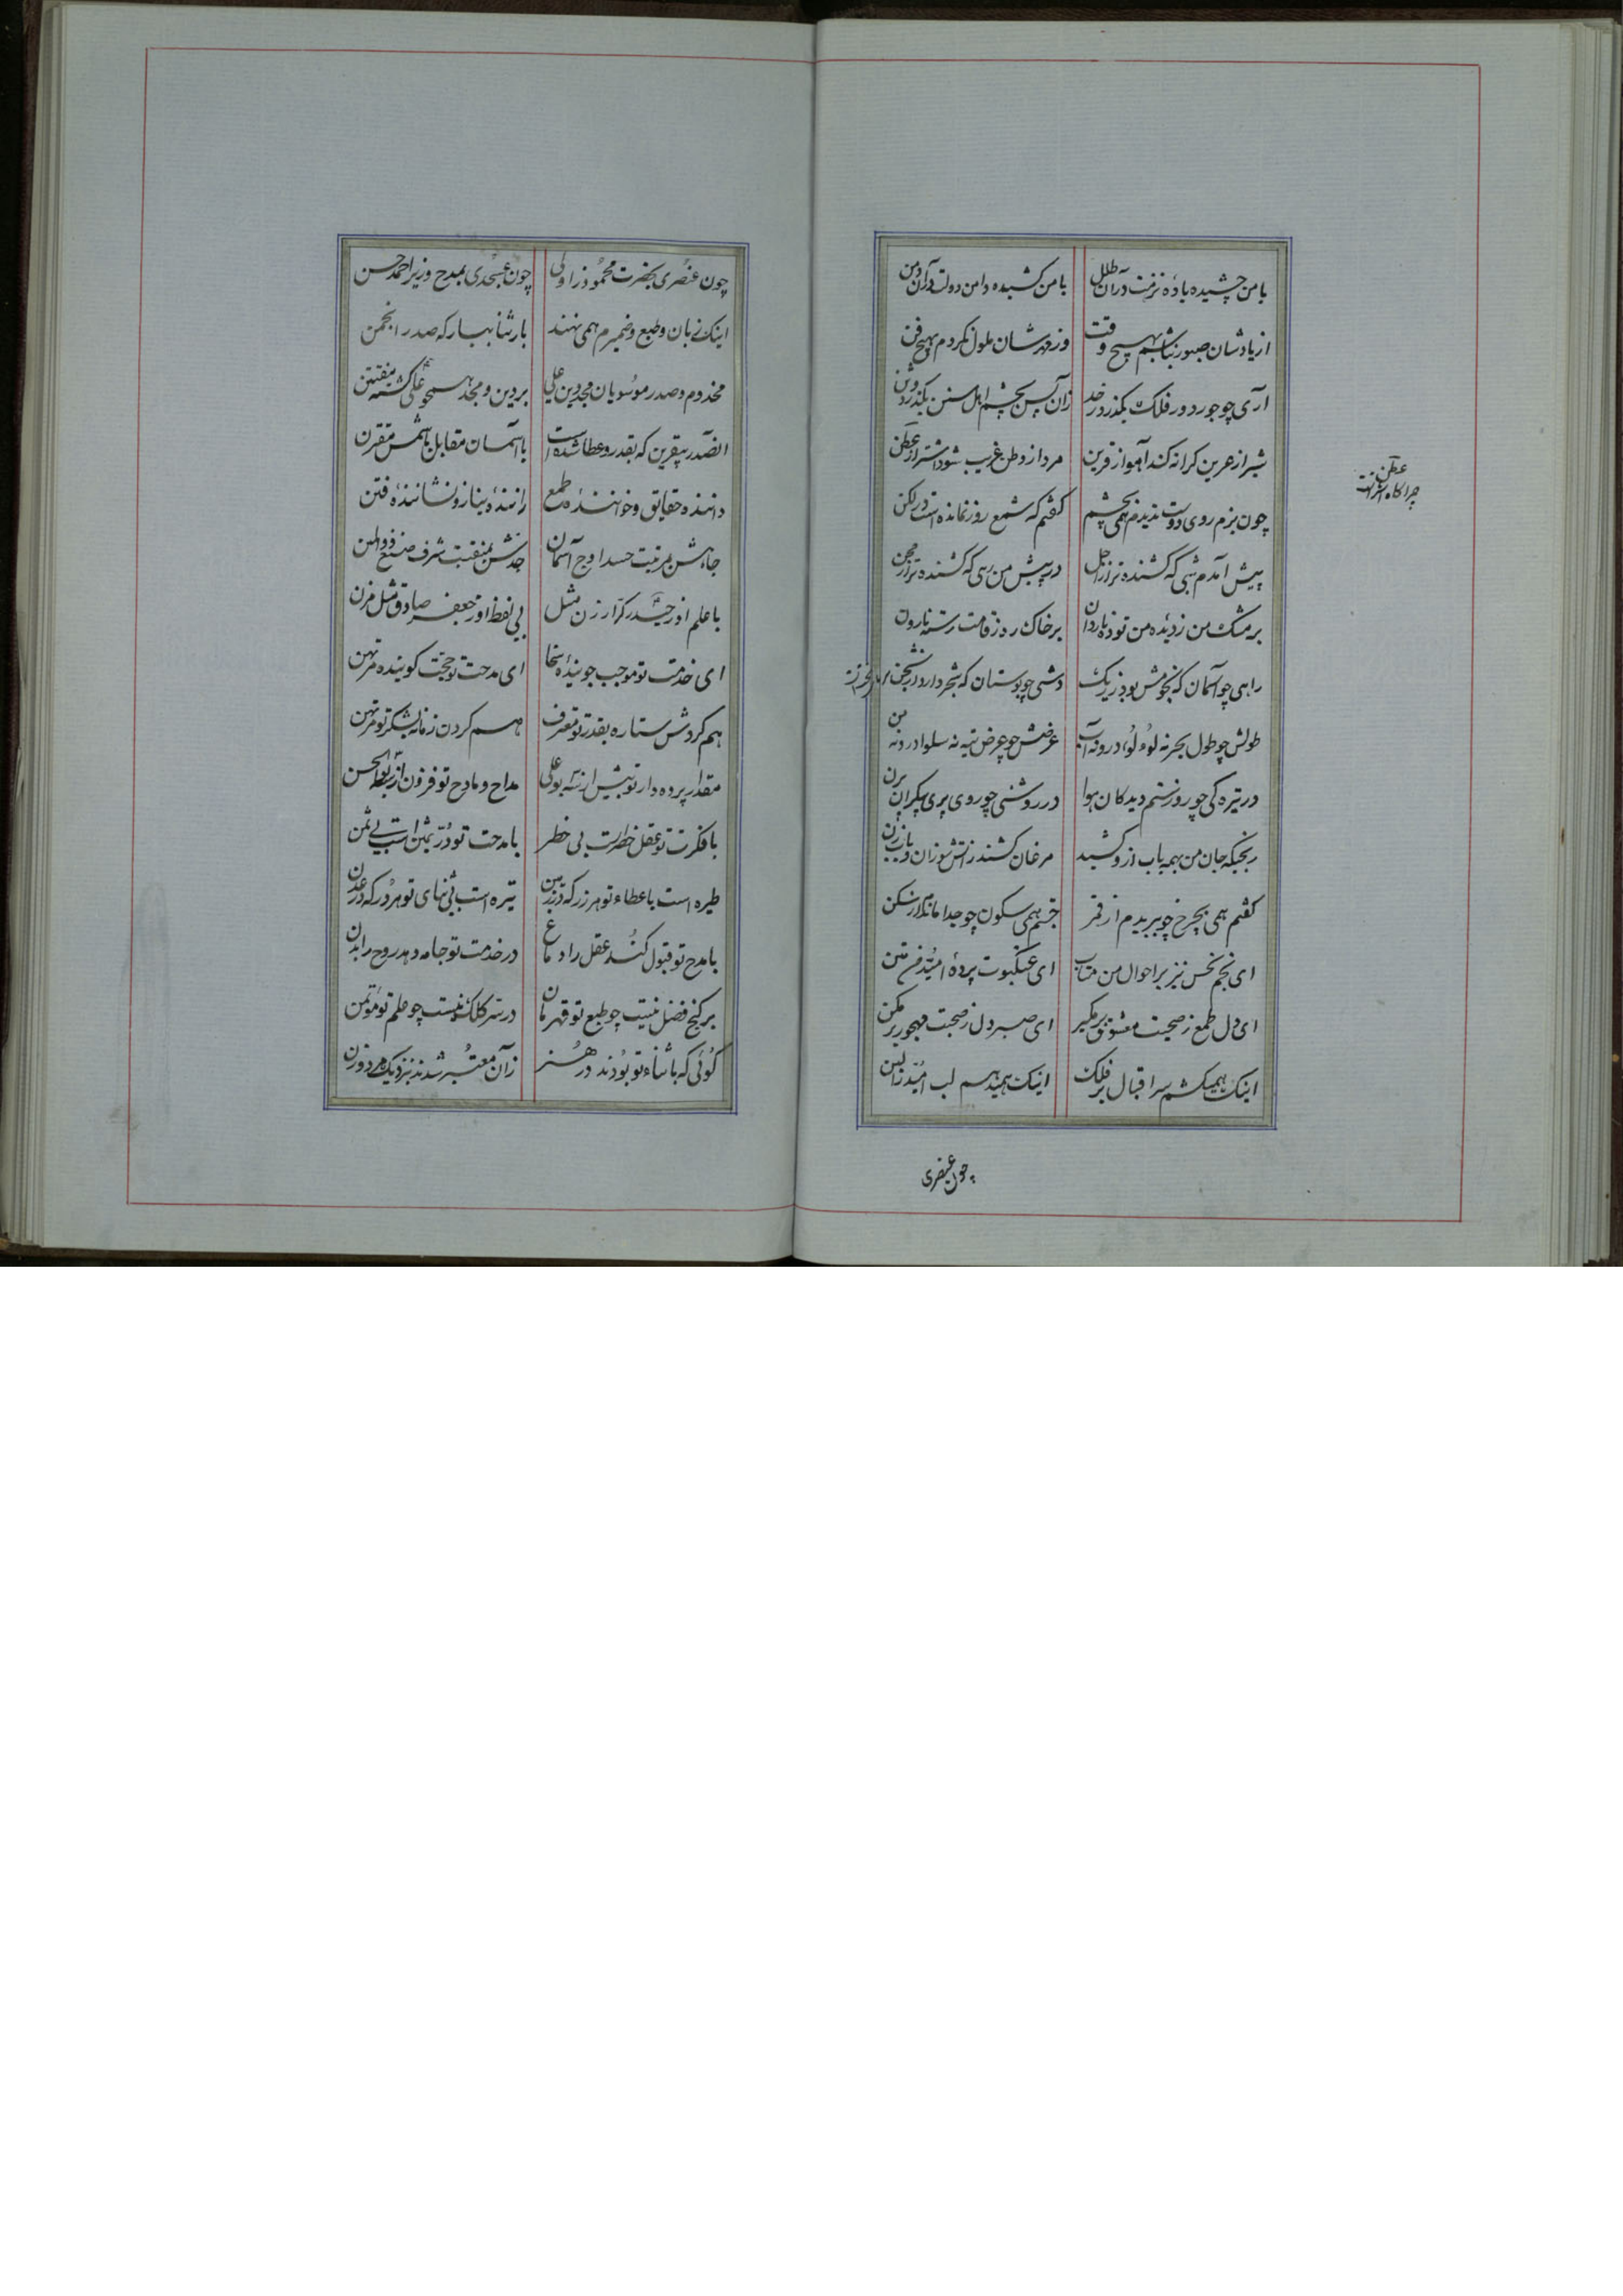 با من چشیده باده نزهت در آن طلل با من کشیده دامن دولت در آن دمن
از یادشان صبور نباشم بهیچ وقت وز مهرشان ملول نکردم بهیچ فن
آری چو جور دور فلک بگذرد ز حد زان پس بچشم اهل سنن بگذرد وسن
شیر از عرین کرانه کند آهو از قرین مرد از وطن غریب شود اشتر از عطن
عطن چراگاه اشتر است
چون بزم روی دوست ندیدم همی بچشم گفتم که شمع روز نمانده است در لکن
پیش آمدم شبی که کشنده تر از اجل در پیش من رهی که کشنده تر از محن
بر مشک من ز دیده من توده ناردان بر خاک ره ز قامت من رسته نارون
راهی چو آسمان که نجومش بود ز ریگ دشتی چو بوستان که شجر دارد از شجن
طولش چو طول بحر نه لؤلؤ درو نه آب عرضش چو عرض تیه نه سلوا درو نه من
در تیره کی چو روز ستم دیدکان هوا در روشنی چو روی پری پیکران پرن
مرغان کشند ز آتش سوزان و بابزن
گفتم همی بچرخ چو ببریدم از قمر جستم همی سکون چو جدا ماندم از سکن
ای نجم نحس نیز بر احوال من متاب ای عنکبوت پرده امید من متن
ای دل طمع ز صحبت معشوق بر مگیر ای صبر دل ز صحبت مهجور بر مکن
اینک همیکشم سر اقبال بر فلک اینک همی نهم لب امید زا لبن
چون عنصری
چون عنصری بحضرت محمود زاولی چون عسجدی بمدح وزیر احمد حسن
اینک زبان و طبع و ضمیرم همی نهند بار ثنا ببار که صدر انجمن
مخدوم و صدر موسویان مجد دین علی بر دین و مجد همچو علی کشته مفتتن
آنصدر بیقرین که بقدر و عطا شده است با آسمان مقابل با شمس مقترن
داننده حقایق و خواننده طمع راننده نیاز و نشاننده فتن
جاهش بمرتبت حسد اوج آسمان جدش بمنقبت شرف صنع ذوالمن
با علم او ز حیدر کرار زن مثل بی لفظ او ز جعفر صادق مثل مزن
ای خدمت تو موجب جوینده سخا ای مدحت تو حجت کوینده مرتهن
هم کردش ستاره بقدر تو معترف هم کردن زمانه بشکر تو مرتهن
مقدار پرده دار تو بیش از بوعلی مداح و مادح تو فزون از بوالحسن
با فکرت تو عقل خطیر است بی خطر با مدحت تو در ثمین است بی ثمن
طیره است با عطاء تو هر زر که در زمین تیره است بی ثنای تو هر در که در عدن
با مدح تو قبول کند عقل را دماغ در خدمت تو جامه دهد روح را بدن
بر گنج فضل نیست چو طبع تو قهرمان در سر کلک نیست چو علم تو مؤتمن
گوئی که با ثناء تو بودند در هنر زان معتبر شدند بنزدیک مرد و زن